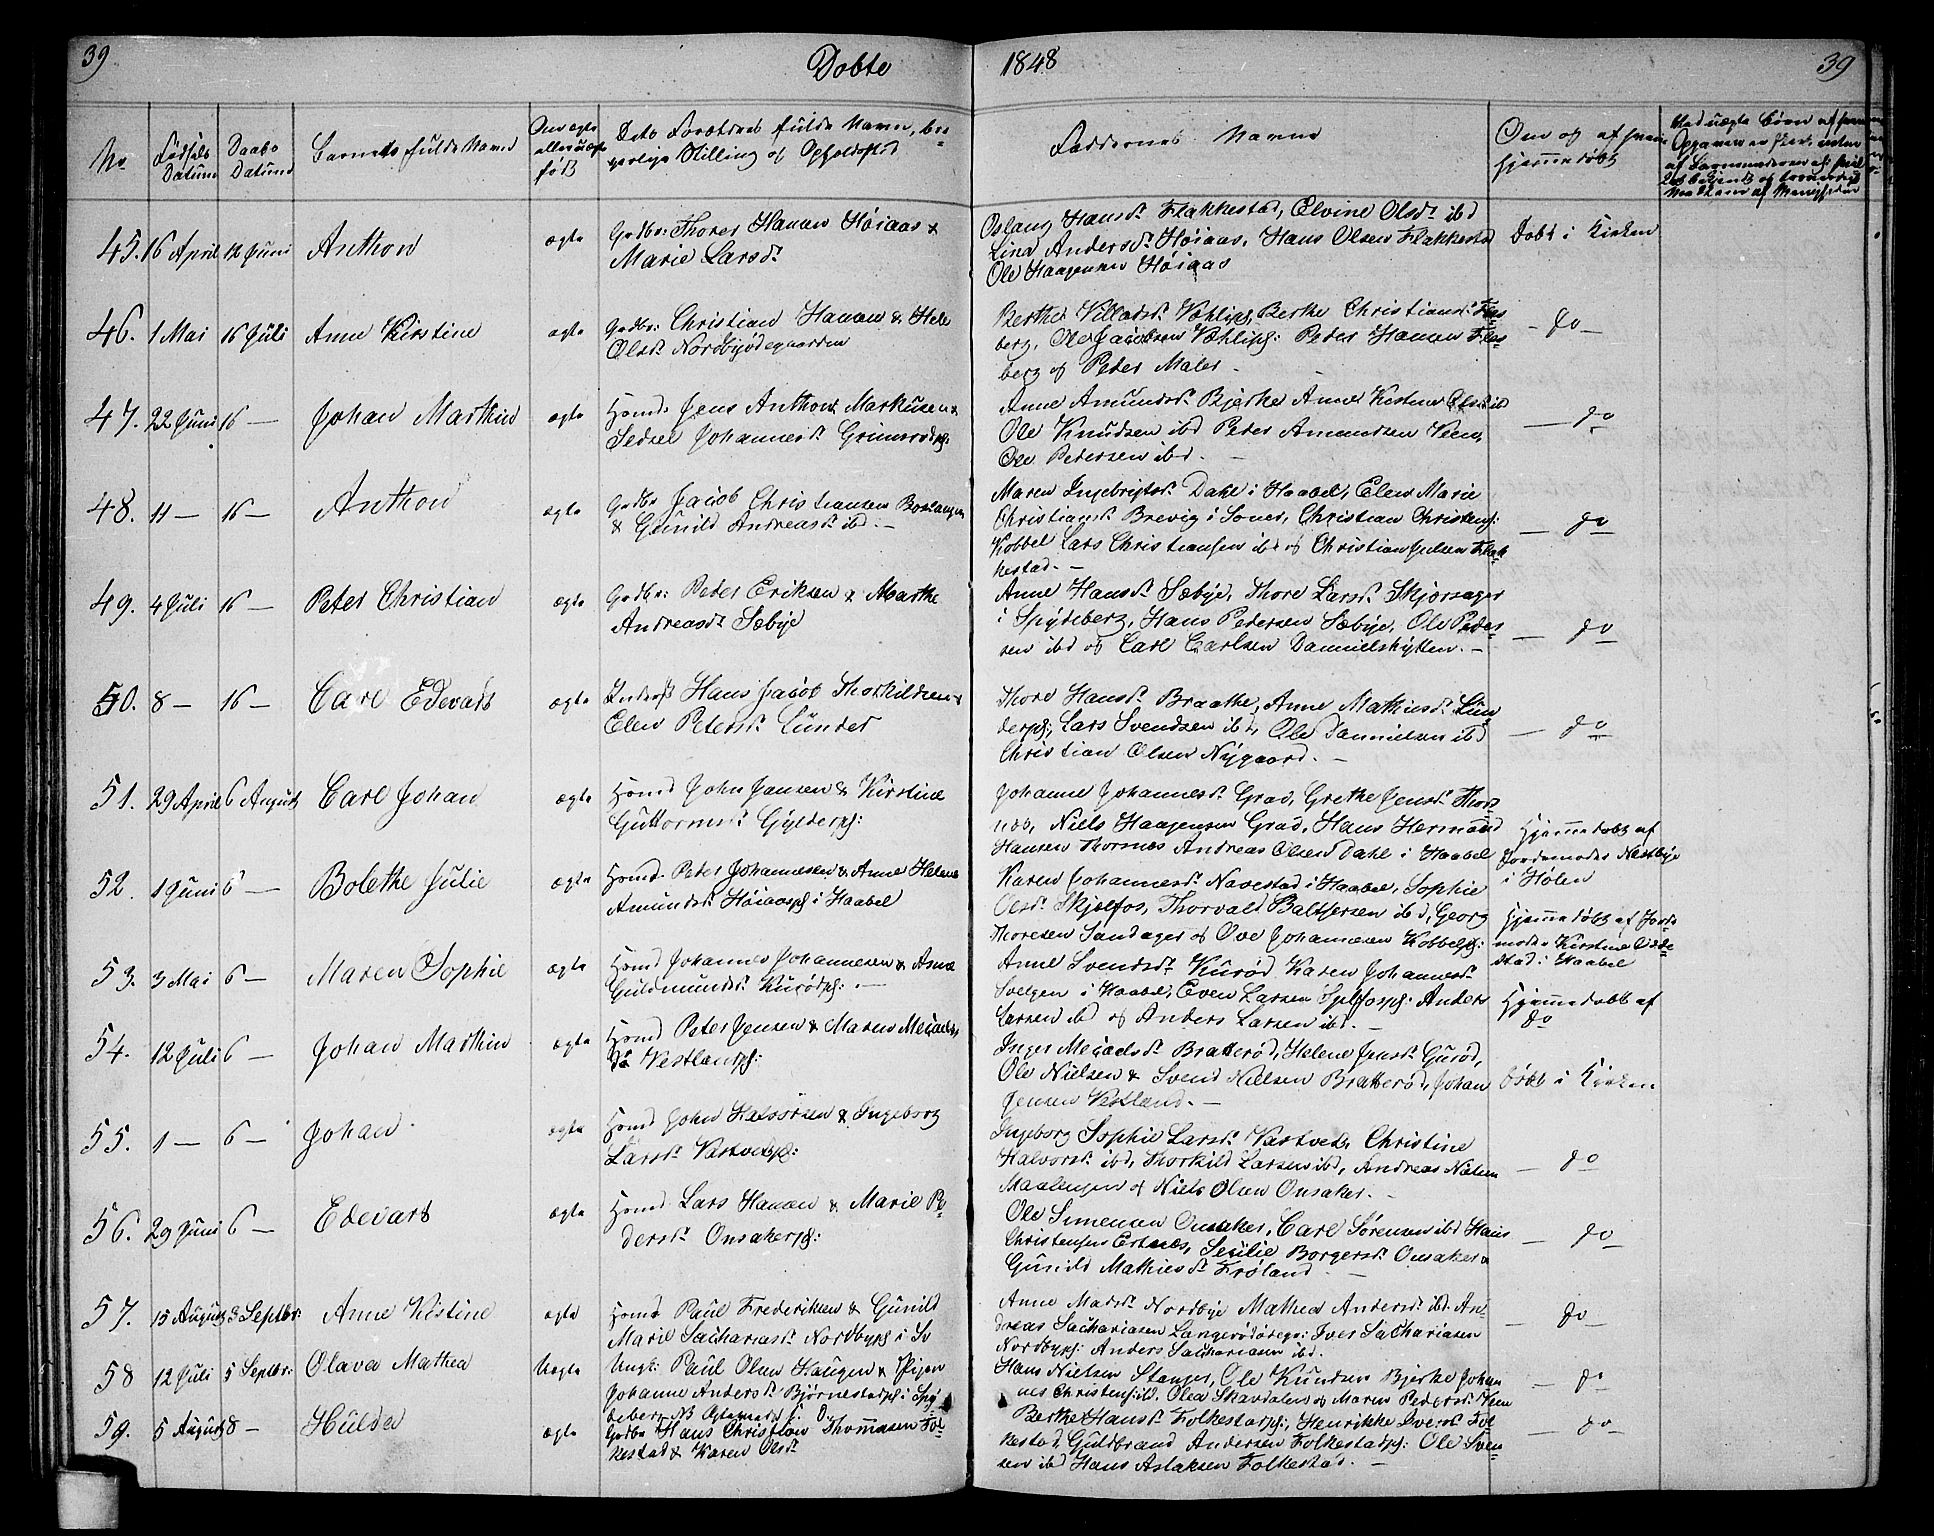 39 Døbte 1848 39
No Fødsels Datum Daabs Datum Barnets fulde Navn Om ægte eller uægte født Dets Forældres fulde Navne, borgerlige Stilling og Opholdssted Faddernes Navne Om og af hvem hjemmedøbt
45. 16 April 12 Juni Anthon ægte Gdbr: Thorer Hansen Høiaas &
Marie Larsd.
Oslaug Hansd. Flakkestad, Elvine Olsd. ibd
Lina Andersd. Høiaas, Hans Olsen Flakkestad
Ole Haagensen Høiaas
Døbt i Kirken
46. 1 Mai 16 Juli Anne Kirstine ægte Gdbr: Christian Hansen & Hele
Olsd. Nordbyødegaarden
Berthe Villadsd. Berthe Christiansd.
berg, Ole Jacobsen Peder Hansen
berg og Peder Maler
— do —
47. 22 Juni 16 — Johan Marthin ægte Huusmd. Jens Anthon Markusen &
Sedsel Johannesd. Grimsrødpl:
Anne Amundsd. Bjerke Anne Kistine Olsd. ibd
Ole Knudsen ibd Peder Amundsen Veen,
Ole Pedersen ibd. —
— do
48. 11 — 16 — Anthon ægte Gdbr Jacob Christiansen Boslangen
& Gunild Andreasd. ibd. —
Maren Ingebrigtsd. Dahl i Haabøl, Elen Marie
Christiansd. Brevig i Soner, Christian Christens:
Kobbel Lars Christiansen ibd og Christian Julsen Flak-
kestad. —
— do
49. 4 Juli 16 — Peter Christian ægte Gdbr: Peder Eriksen & Marthe
Andreasd. Sæbye
Anne Hansd. Sæbye, Thore Larsd. Skjørsager
i Spydeberg, Hans Pedersen Sæbye, Ole Peder-
sen ibd og Carl Carlsen Dannielshytten. —
— do
50. 8 — 16 — Carl Edevard ægte Hans Jacob Thorkildsen &
Elen Petersd. Lunder
Thore Hansd. Braathe, Anne Mathisd. Lun-
derpl:, Lars Svendsen ibd, Ole Dannielsen ibd
Christian Olsen Nygaard. —
— do
51. 29 April 6 August Carl Johan ægte Huusmd John Jansen & Kirstine
Guttormsd. Gylderpl:
Johanne Johannesd. Grav, Grethe Jensd. Thor-
næs, Niels Haagensen Grav, Hans Hermand
Hansen Thornæs Andreas Olsen Dahl i Haabøl
Hjemmedøbt af
Jordemoder Næsbye
i Hølen
52. 1 Juni 6 — Bolethe Julie ægte Huusmd. Peter Johannesen & Anne Helene
Amundsd. Høiaaspl i Haabøl
Karen Johannesd. Navestad i Haabøl, Sophie
Olsd. Skjælfos, Thorvald Baltsersen ibd, Georg
Thoresen Sandager og Ove Johannesen Kobbelpl:
Hjemmedøbt af Jorde-
moder Kirstine
i Haabøl
53. 3 Mai 6 — Maren Sophie ægte Huusmd Johannes Johannesen & Anne
Guldmundsd. Kurødpl: —
Anne Svendsd. Kurød, Karen Johannesd.
Svelgen i Haabøl, Even Larsen Anders
Larsen ibd og Anders Larsen ibd. —
Hjemmedøbt af
do
54. 12 Juli 6 — Johan Marthin ægte Huusmd Peter Jensen & Maren Micaels-
d. Vestlandpl:
Inger Micaelsd. Bratterød, Helene Jensd. Gurød,
Ole Nielsen & Svend Nielsen Bratterød, Johan
Jensen Vestland. —
Døbt i Kirken
55. 1 — 6 — Johan ægte Huusmd John Halvorsen & Ingeborg
Larsd. Vastvedpl:
Ingeborg Sophie Larsd. Vastved, Christine
Halvorsd. ibd, Thorkild Larsen ibd, Andreas Nielsen
Maalengen og Niels Olsen Onsaker. —
— do
56. 29 Juni 6 — Edevard ægte Huusmd Lars Hansen & Marie Pe-
dersd. Onsakerpl:
Ole Simensen Onsaker, Carl Sørensen ibd Hans
Christensen Ertnæs, Secilie Borgersd. Onsaker &
Gunild Mathisd. Frøland —
— do
57. 15 August 3 Septbr: Anne Kistine ægte Huusmd Paul Frederiksen & Gunild
Marie Sachariasd. Nordbypl i
Anne Madsd. Nordbye Mathea Andersd. ibd. An-
dreas Sachariasen Langerødeieg: Iver Sachariasen
Nordbypl: Anders Sachariasen ibd.
— do —
58 12 Juli 5 Septbr: Olava Mathea Uægte Ungk: Paul Olsen Haugen & Pigen
Johanne Andersd. Bjørnestadpl i Spy-
deberg
Hans Nielsen Stanger, Ole Knudsen Bjerke Johan
nes Christens: ibd. Olea Skavdalen og Maren Pedersd. Veen
— do
59. 5 August 8 — Hulda ægte Gdbr Hans Christian Thommesen Fol-
kestad & Karen Olsd.
Berthe Hansd. Folkestadpl:, Henrikke Iversd. Fol-
kestad, Guldbrand Andersen Folkestadpl: Ole Sven-
sen ibd Hans Aslaksen Folkestad. —
— do